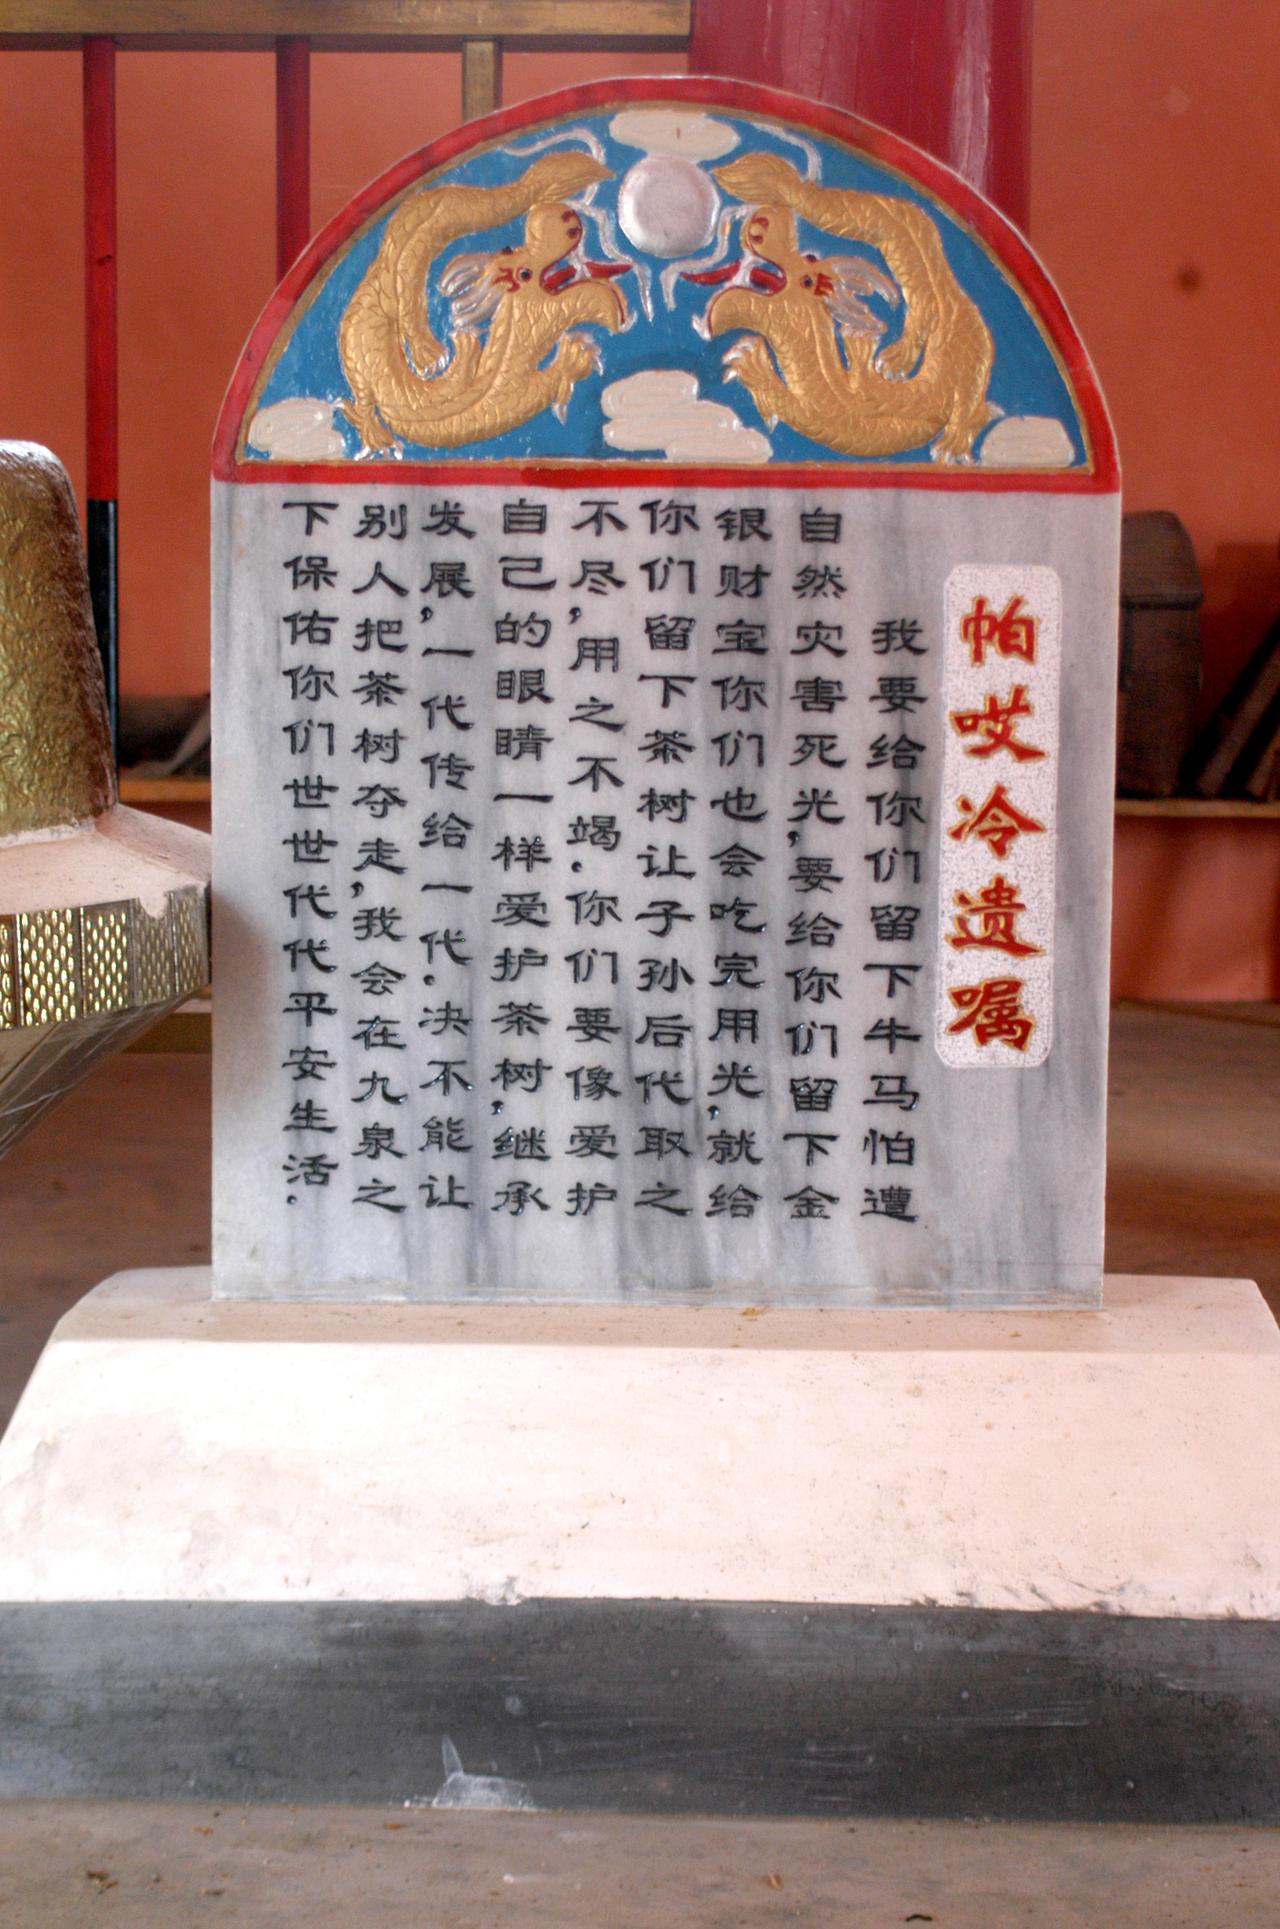 帕哎冷遗嘱
我要给你们留下牛马怕遭
自然灾害死光，要给你们留下金
银财宝你们也会吃完用光，就给
你们留下茶树让子孙后代取之
不尽，用之不竭．你们要像爱护
自己的眼睛一样爱护茶树，继承
发展，一代传给一代．决不能让
别人把茶树夺走，我会在九泉之
下保佑你们世世代代平安生活．